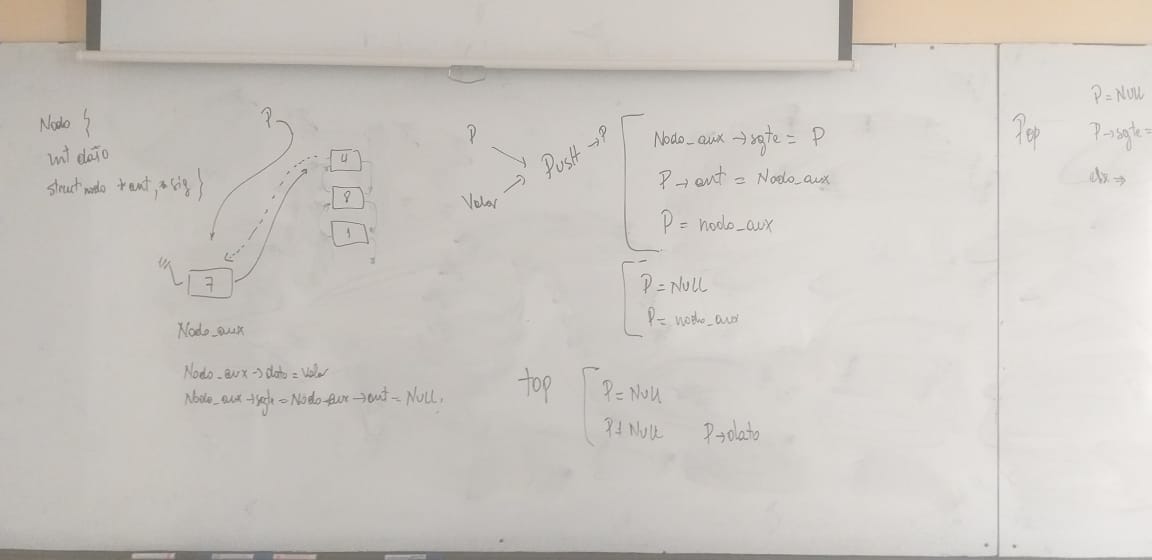 Nodo {
int dato
struct nodo * ant, * sig }
P
4
8
1
7
Nodo_aux
Nodo_aux → dato = Valor
Nodo_aux → sgte = Nodo_aux → ant = NULL.
P
Valor
PusH → P
Nodo_aux → sgte = P
P → ant = Nodo_aux
P = nodo_aux
P = NULL
P = nodo_aux
top
P = NULL
P ≠ NULL P → dato
Pop
P = NULL
P → sgte =